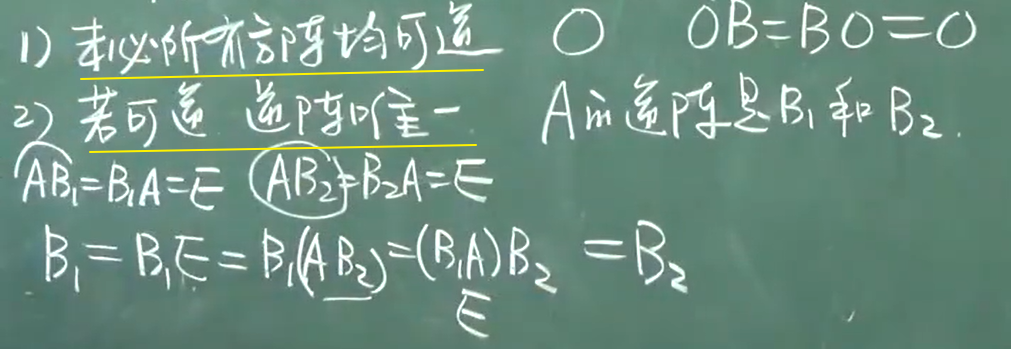 1) 未必所有方阵均可逆 O OB=BO=O
2) 若可逆 逆阵唯一 A的逆阵是B₁和B₂.
AB₁=B₁A=E AB₂=B₂A=E
B₁=B₁E=B₁(AB₂)=(B₁A)B₂=B₂
E